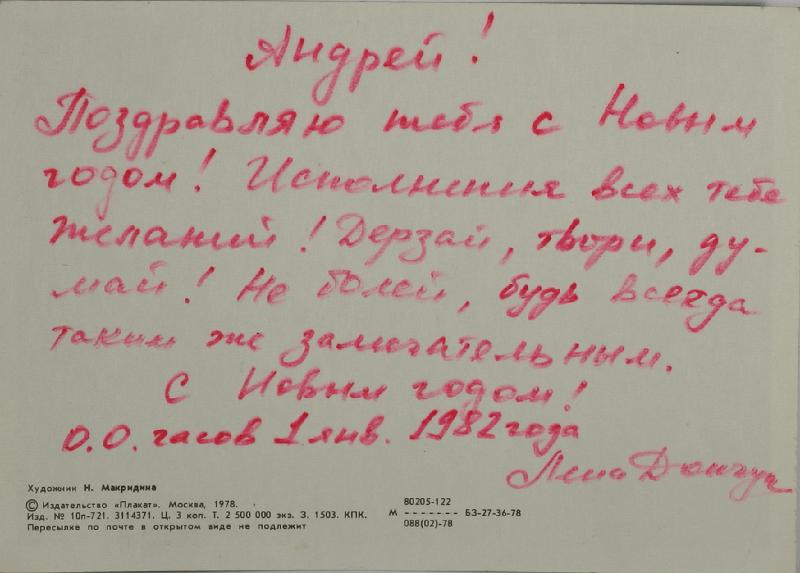 Андрей!
Поздравляю тебя с Новым
годом! Исполнения всех тебе
желаний! Дерзай, твори, ду-
май! Не болей, будь всегда
таким же замечательным.
С Новым годом!
0.0. часов 1 янв. 1982 года
Лена
Художник Н. Макридина
© Издательство «Плакат». Москва, 1978.
Изд. № 10п-721. 3114371. Ц. 3 коп. Т. 2 500 000 экз. З. 1503. КПК.
Пересылке по почте в открытом виде не подлежит
80205-122
М ------- БЗ-27-36-78
088(02)-78